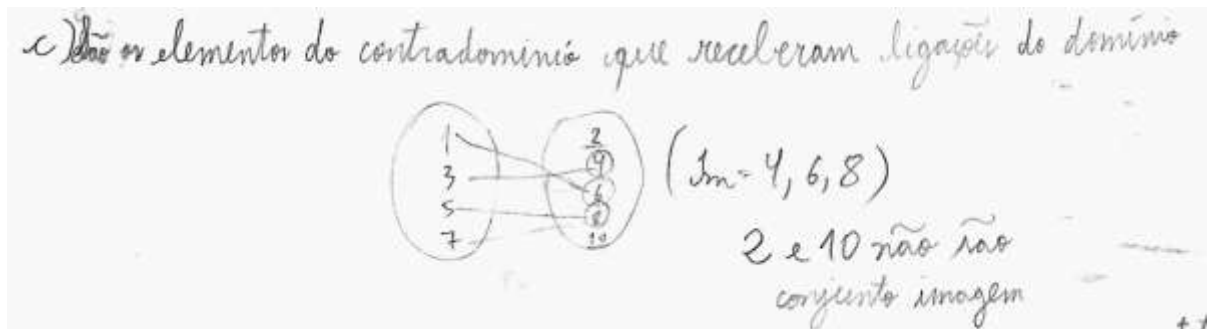 c) São os elementos do contradominió que receberam ligações do domínio
1 2
3 4
5 6
7 8
10
(Im = 4, 6, 8)
2 e 10 não são
conjunto imagem